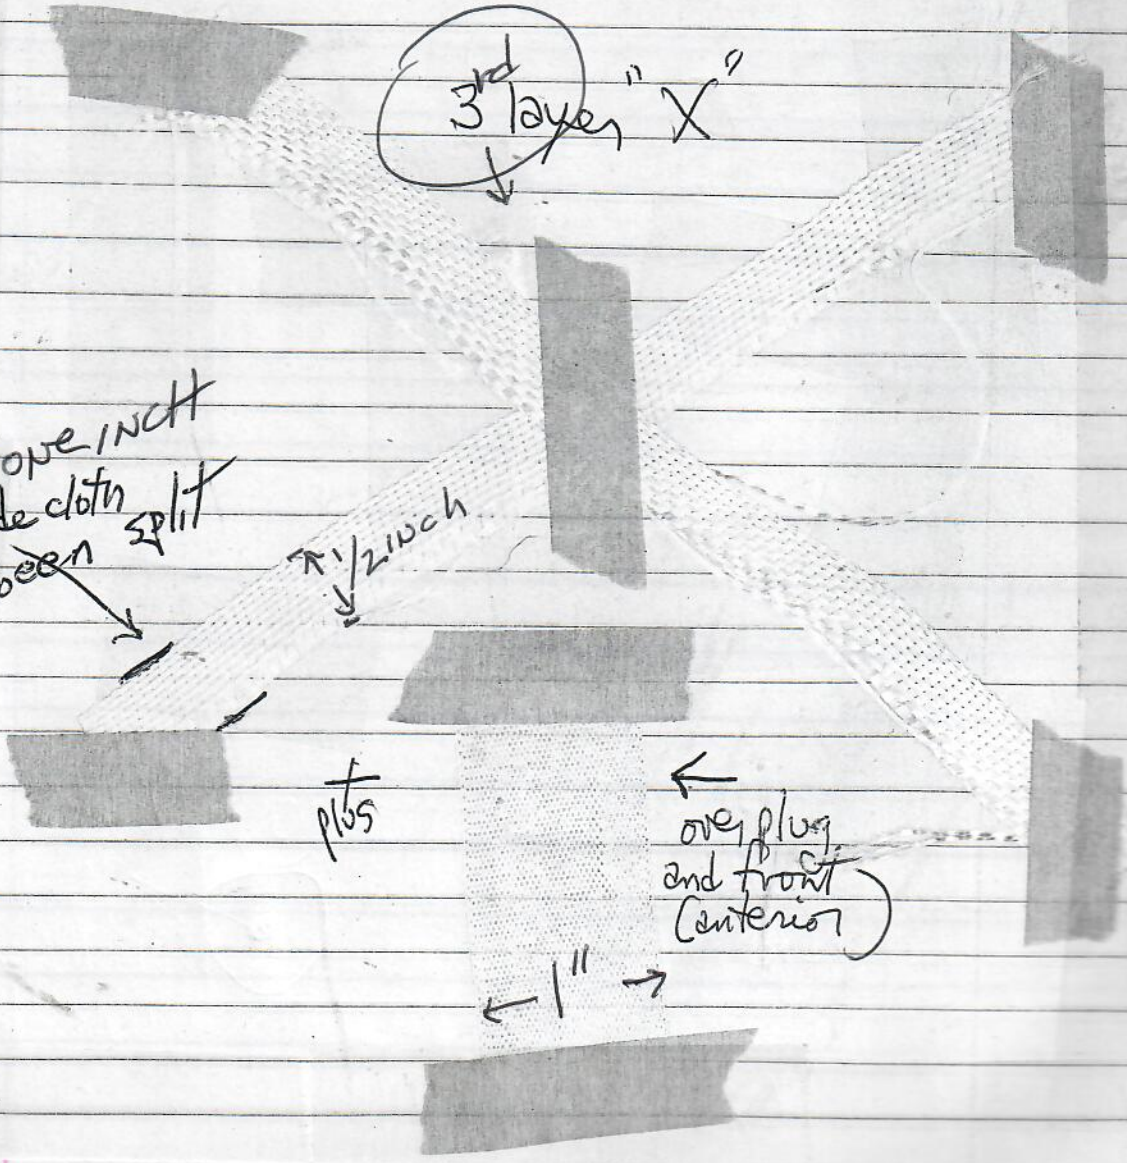 3rd layer "X"
one inch
de cloth
split
been
1/2 inch
+
plus
over plug
and front
(anterior)
1"